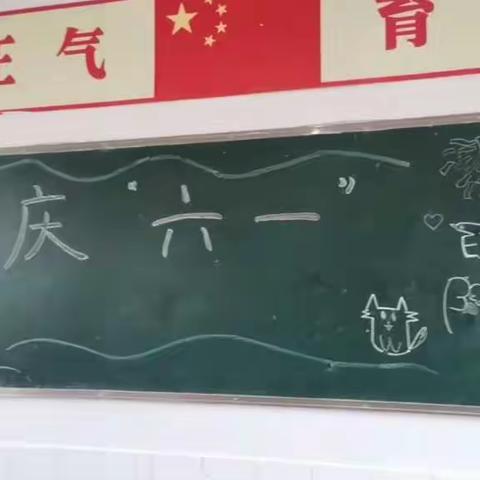 正气 育
庆“六一”